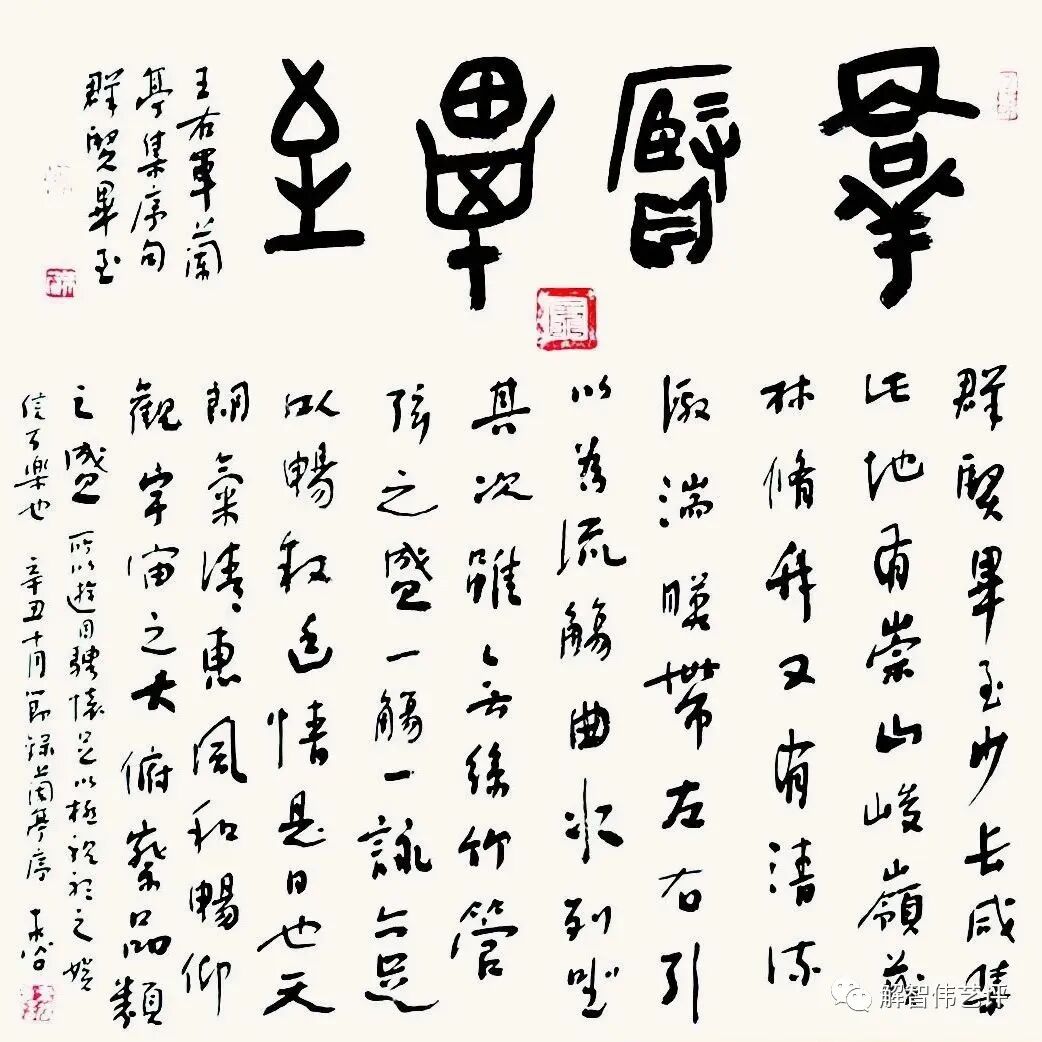 群賢畢至
王右軍蘭
亭集序句
群賢畢至
群賢畢至少長咸集
此地有崇山峻嶺茂
林脩竹又有清流
激湍暎帶左右引
以為流觴曲水列坐
其次雖無絲竹管
弦之盛一觴一詠亦足
以暢敘幽情是日也天
朗氣清惠風和暢仰
觀宇宙之大俯察品類
之盛所以遊目騁懷足以極視聽之娛
信可樂也 辛丑十月節錄蘭亭序
解智伟艺评